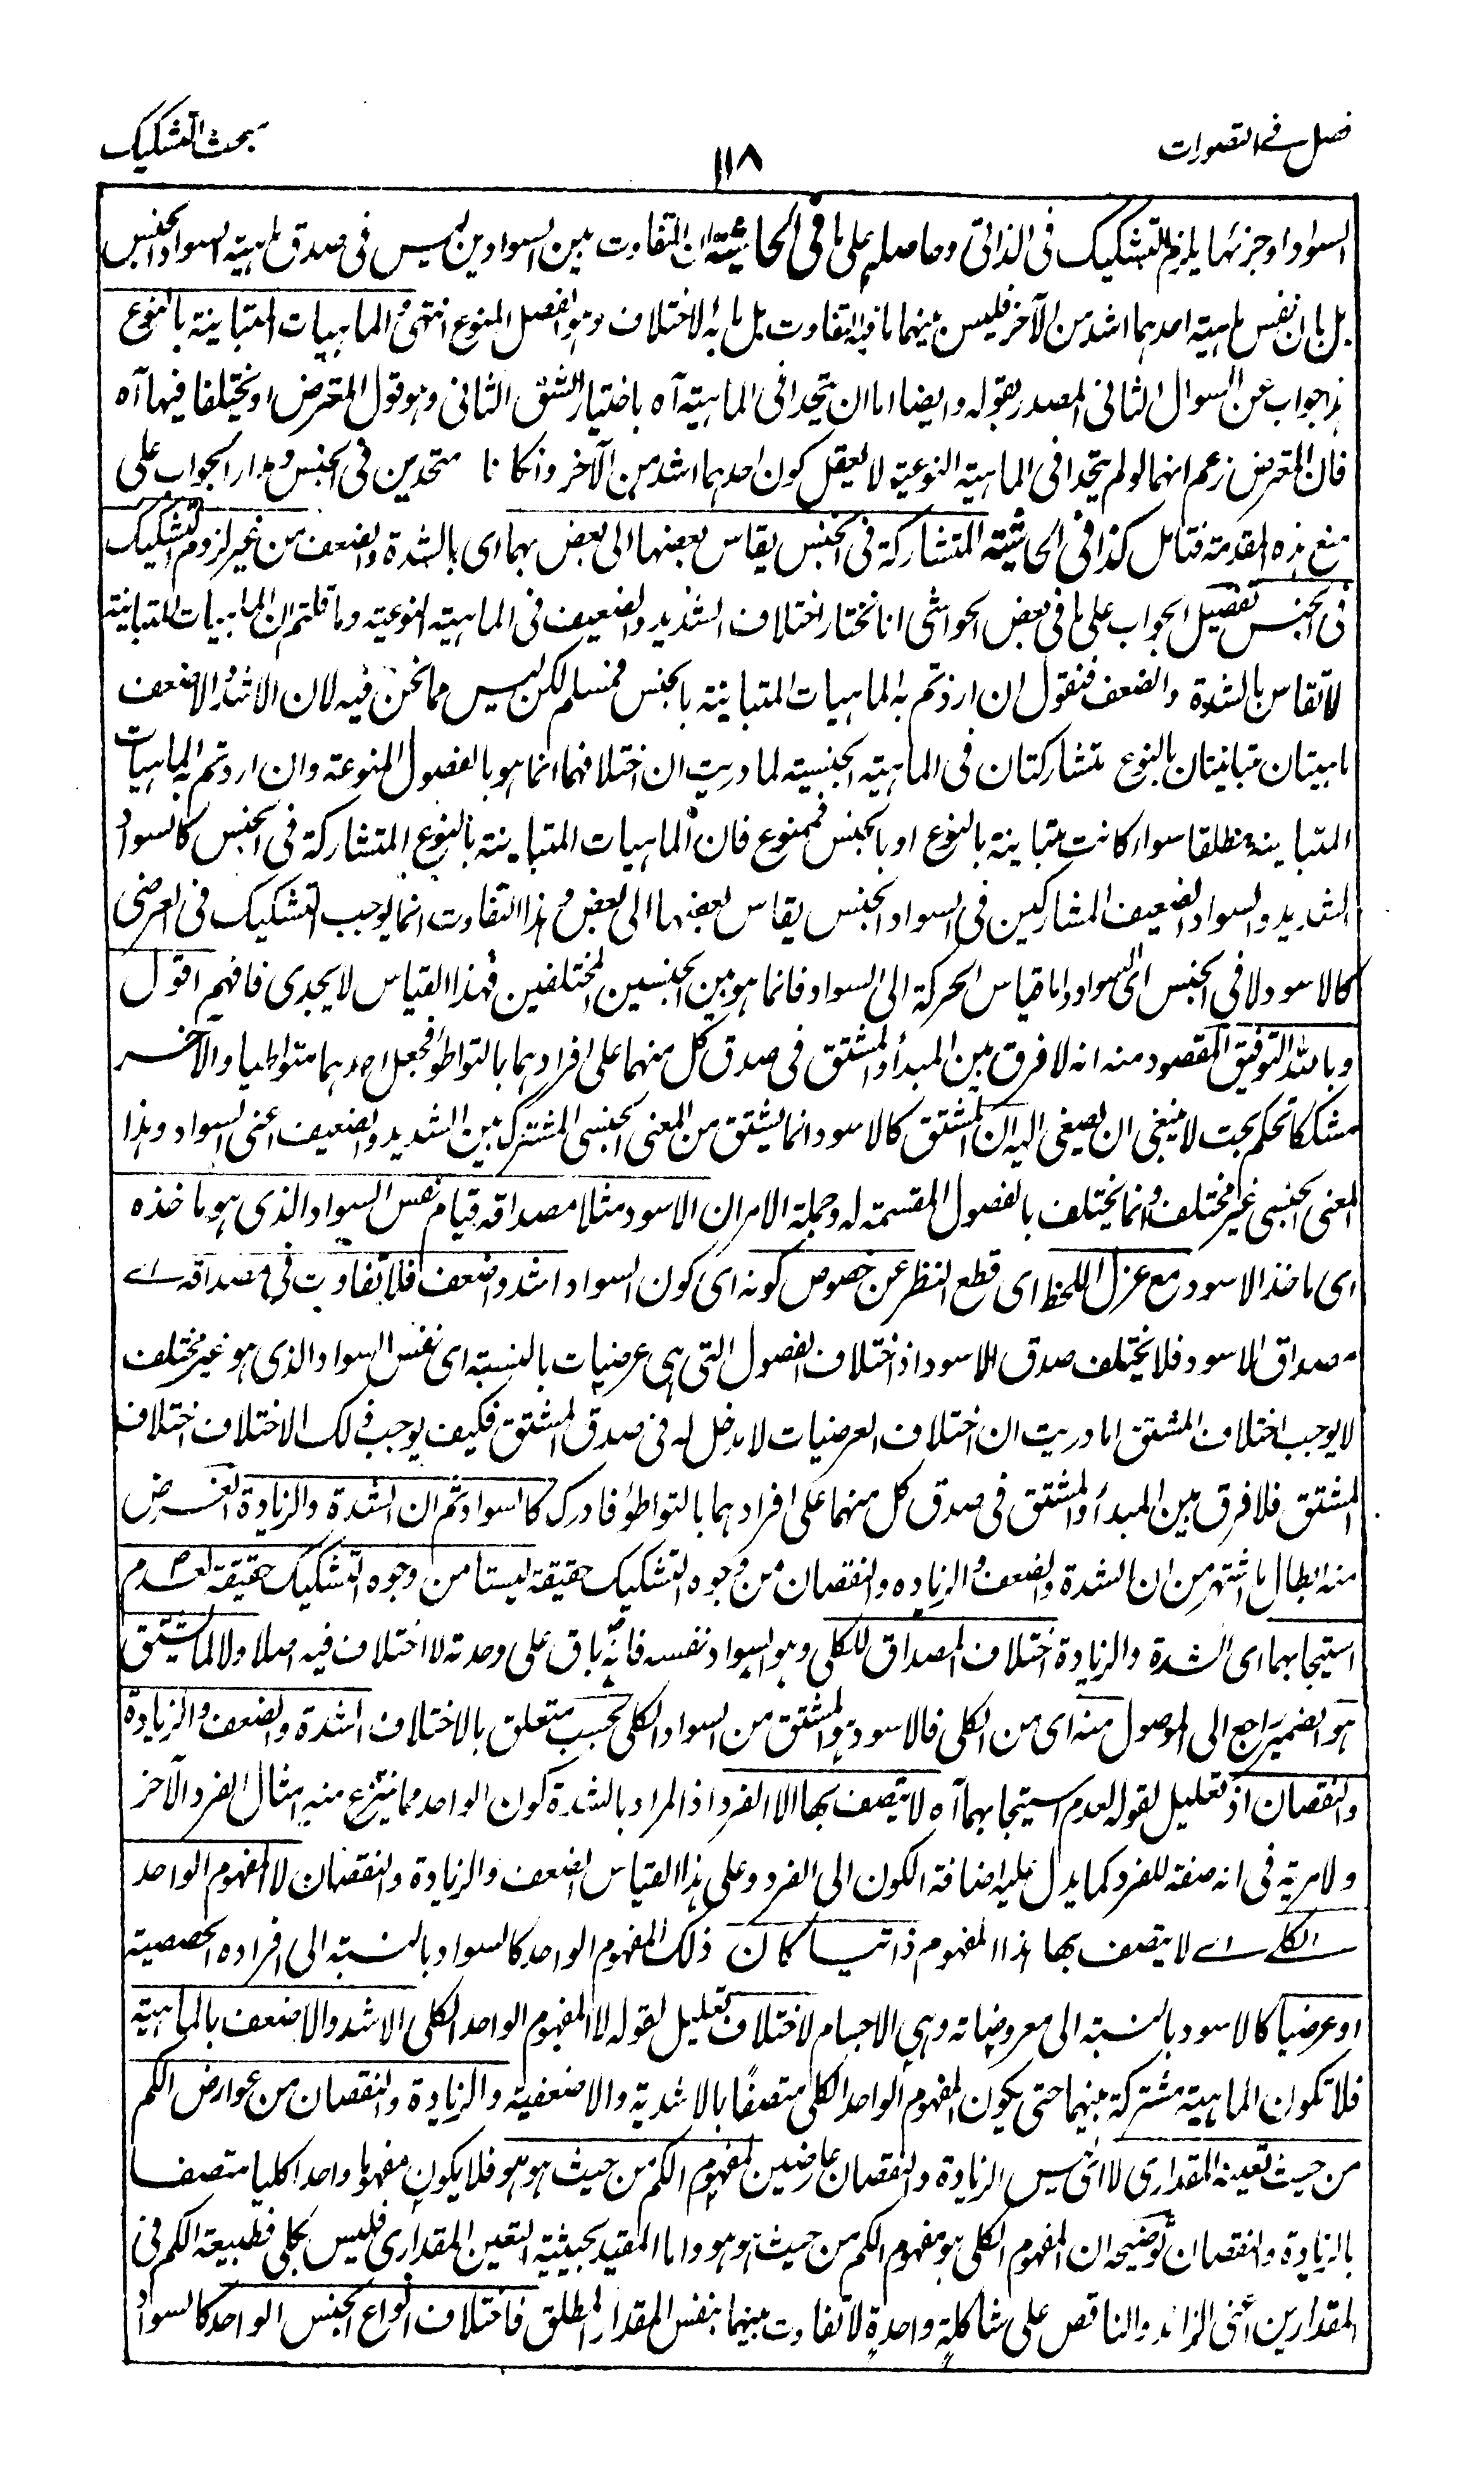 فصل فے التصورات
١١٨
مبحث التشکیک
السواد او جزئها يلزم التشكيك فى الذاتى وحاصله على ما فى الحاشية ان التفاوت بين السوادين ليس فى صدق ماهية السواد الجنس
بل بان نفس ماهية احدهما اشد من الآخر فليس بينهما ما فيه التفاوت بل ما به الاختلاف وهو الفصل المنوع انتهى والماهيات المتباينة بالنوع
هذا جواب عن السوال الثانى المصدر بقوله وايضا اما ان يتحدا فى الماهية آه باختيار الشق الثانى وهو قول المعترض او يختلفا فيها آه
فان المعترض زعم انهما لو لم يتحدا فى الماهية النوعية لا يعقل كون احدهما اشد من الآخر وان كانا متحدين فى الجنس ومدار الجواب على
منع هذه المقدمة فتامل كذا فى الحاشية المتشاركة فى الجنس يقاس بعضها الى بعض بهما اى بالشدة والضعف من غير لزوم التشكيك
فى الجنس تفصيل الجواب على ما فى بعض الحواشى انا نختار اختلاف الشديد والضعيف فى الماهية النوعية وما قلتم ان الماهيات المتباينة
لا تقاس بالشدة والضعف فنقول ان اردتم به الماهيات المتباينة بالجنس فمسلم لكن ليس مما نحن فيه لان الاشد والاضعف
ماهيتان متباينتان بالنوع متشاركتان فى الماهية الجنسية لما دريت ان اختلافهما انما هو بالفصول المنوعة وان اردتم به الماهيات
المتباينة مطلقا سواء كانت متباينة بالنوع او بالجنس فممنوع فان الماهيات المتباينة بالنوع المتشاركة فى الجنس كالسواد
الشديد والسواد الضعيف المشاركين فى السواد الجنس يقاس بعضها الى بعض وهذا التفاوت انما يوجب التشكيك فى العرضى
كالاسود لا فى الجنس اى السواد واما قياس الحركة الى السواد فانما هو بين الجنسين المختلفين فهذا القياس لا يجدى فافهم اقول
وبالله التوفيق المقصود منه انه لا فرق بين المبدأ والمشتق فى صدق كل منهما على افرادهما بالتواطؤ فجعل احدهما متواطيا والآخر
مشككا تحكم بحت لا ينبغى ان يصغى اليه ان المشتق كالاسود انما يشتق من المعنى الجنسى المشترك بين الشديد والضعيف اعنى السواد وهذا
المعنى الجنسى غير مختلف وانما يختلف بالفصول المقسمة له وجملة الامر ان الاسود مثلا مصداقه قيام نفس السواد الذى هو ماخذه
اى ماخذ الاسود مع عزل اللحظ اى قطع النظر عن خصوص كونه اى كون السواد اشد واضعف فلا تفاوت فى مصداقه اے
مصداق الاسود فلا يختلف صدق الاسود اذ اختلاف الفصول التى هى عرضيات بالنسبة اى نفس السواد الذى هو غير مختلف
لا يوجب اختلاف المشتق اما دريت ان اختلاف العرضيات لا مدخل له فى صدق المشتق فكيف يوجب ذلك الاختلاف اختلاف
المشتق فلا فرق بين المبدأ والمشتق فى صدق كل منهما على افرادهما بالتواطؤ فادرك كالسواد ثم ان الشدة والزيادة الغرض
منه ابطال ما اشتهر من ان الشدة والضعف والزيادة والنقصان من وجوه التشكيك حقيقة ليستا من وجوه التشكيك حقيقة لعدم
استيجابهما اى الشدة والزيادة اختلاف المصداق للكلى وهو السواد نفسه فانه باق على وحدته لا اختلاف فيه اصلا ولا لما يشتق
هو الضمير راجع الى الموصول منه اى من الكلى فالاسود هو المشتق من السواد الكلى بحسب متعلق بالاختلاف الشدة والضعف والزيادة
والنقصان اذ تعليل لقوله لعدم استيجابهما آه لا يتصف بها الا الفرد اذ المراد بالشدة كون الواحد مما ينتزع منه امثال الفرد الآخر
ولا مرية فى انه صفة للفرد كما يدل عليه اضافة الكون الى الفرد وعلى هذا القياس الضعف والزيادة والنقصان لا المفهوم الواحد
الكلے اے لا يتصف بها هذا المفهوم ذاتيا كان ذلك المفهوم الواحد كالسواد بالنسبة الى افراده الحصصية
او عرضيا كالاسود بالنسبة الى معروضاته وهى الاجسام لاختلاف تعليل لقوله لا المفهوم الواحد الكلى الاشد والاضعف بالماهية
فلا تكون الماهية مشتركة بينهما حتى يكون المفهوم الواحد الكلى متصفًا بالاشدية والاضعفية والزيادة والنقصان من عوارض الكم
من حيث تعينه المقدارى لا اى ليس الزيادة والنقصان عارضين لمفهوم الكم من حيث هو هو فلا يكون مفهوما واحدا كليا متصفا
بالزيادة والنقصان توضيحه ان المفهوم الكلى هو مفهوم الكم من حيث هو هو واما المقيد بحيثية التعين المقدارى فليس بكلى فطبيعة الكم فى
المقدارين اعنى الزائد والناقص على شاكلة واحدة لا تفاوت بينهما بنفس المقدار المطلق فاختلاف انواع الجنس الواحد كالسواد